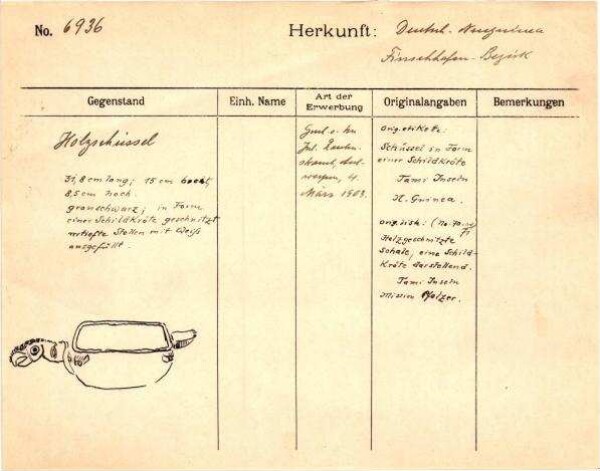 No. 6936
Herkunft: Deutsch-Neuguinea
Finschhafen-Bezirk
Gegenstand
Einh. Name
Art der Erwerbung
Originalangaben
Bemerkungen
Holzschüssel
31,8 cm lang; 15 cm breit,
8,5 cm hoch.
grauschwarz; in Form
einer Schildkröte geschnitzt
vertiefte Stellen mit Weiß
ausgefüllt.
März 1903.
Orig. etikete:
Schüssel in Form
einer Schildkröte
Tami Inseln
N. Guinea.
Orig. Lisk: (No.
Holzgeschnitzte
Schale, eine Schild-
kröte darstellend.
Tami Inseln
Mission